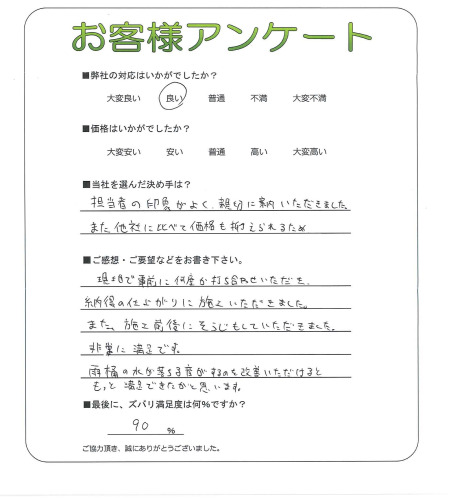 お客様アンケート
■弊社の対応はいかがでしたか？
大変良い 良い 普通 不満 大変不満
■価格はいかがでしたか？
大変安い 安い 普通 高い 大変高い
■当社を選んだ決め手は？
担当者の印象がよく、親切に案内いただきました。
また他社に比べて価格も抑えられるため
■ご感想・ご要望などをお書き下さい。
現地で事前に何度か打ち合わせいただき、
納得の仕上がりに施工いただきました。
また、施工前後にそうじもしていただきました。
非常に満足です。
雨樋の水が落ちる音がするのを改善いただけると
もっと満足できたかと思います。
■最後に、ズバリ満足度は何％ですか？
90 %
ご協力頂き、誠にありがとうございました。